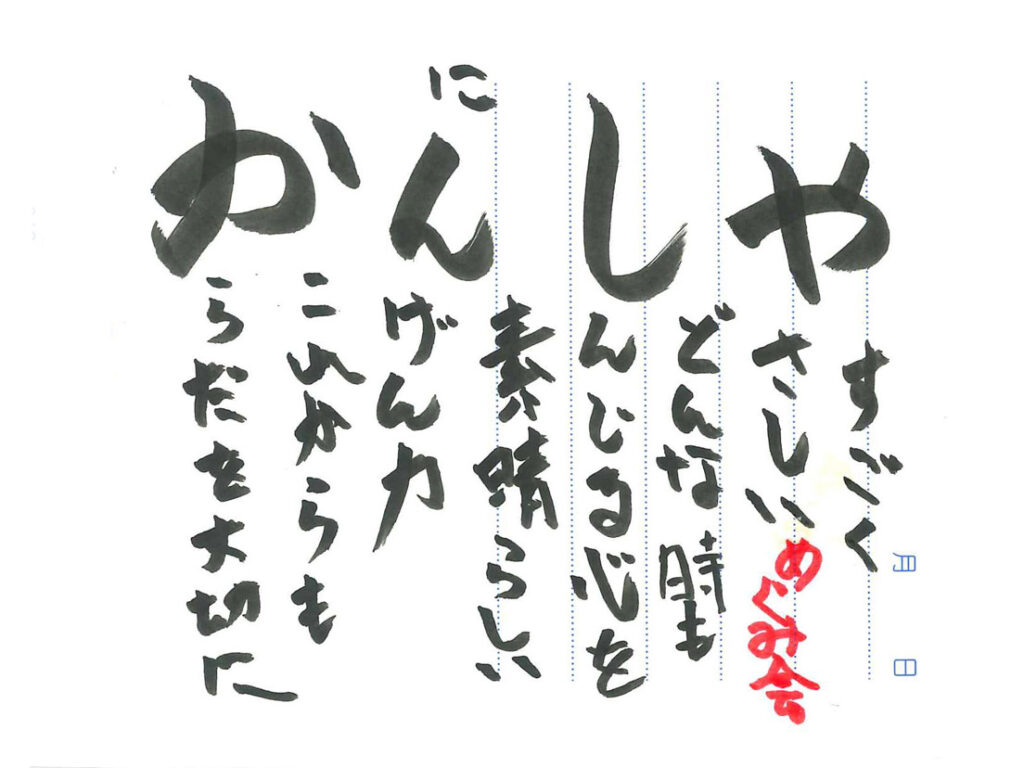 すごく
やさしいめぐみ会
どんな時も
しんじる心を
素晴らしい
にんげん力
これからも
からだを大切に
月 日